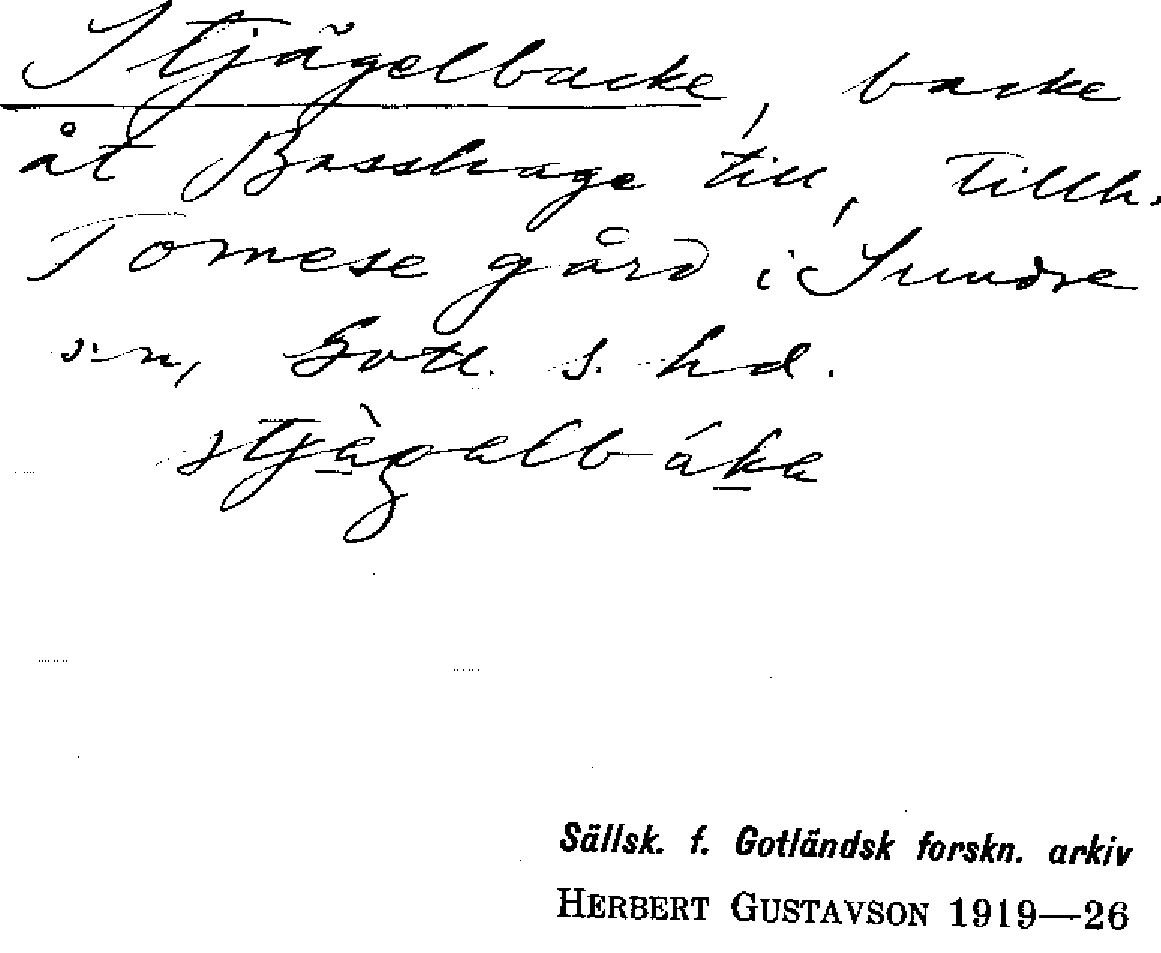 Stjägelbacke, backe
åt Busshage till, tillh.
Tomese gård i Sundre
s:n, Gotl. s. hd.
Sällsk. f. Gotländsk forskn. arkiv
HERBERT GUSTAVSON 1919—26